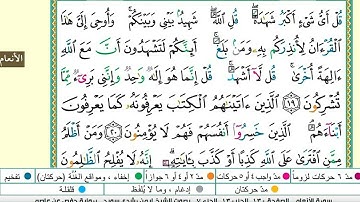 قُلْ أَيُّ شَيْءٍ أَكْبَرُ شَهَٰدَةًۖ قُلِ ٱللَّهُۖ شَهِيدُۢ بَيْنِي وَبَيْنَكُمْۚ وَأُوحِيَ إِلَيَّ هَٰذَا
ٱلْقُرْءَانُ لِأُنذِرَكُم بِهِۦ وَمَنۢ بَلَغَۚ أَئِنَّكُمْ لَتَشْهَدُونَ أَنَّ مَعَ ٱللَّهِ
ءَالِهَةً أُخْرَىٰۚ قُل لَّآ أَشْهَدُۚ قُلْ إِنَّمَا هُوَ إِلَٰهٌ وَٰحِدٌ وَإِنَّنِي بَرِيٓءٌ مِّمَّا
تُشْرِكُونَ ١٩ ٱلَّذِينَ ءَاتَيْنَٰهُمُ ٱلْكِتَٰبَ يَعْرِفُونَهُۥ كَمَا يَعْرِفُونَ
أَبْنَآءَهُمُۘ ٱلَّذِينَ خَسِرُوٓا۟ أَنفُسَهُمْ فَهُمْ لَا يُؤْمِنُونَ ٢٠ وَمَنْ أَظْلَمُ
مِمَّنِ ٱفْتَرَىٰ عَلَى ٱللَّهِ كَذِبًا أَوْ كَذَّبَ بِـَٔايَٰتِهِۦٓۗ إِنَّهُۥ لَا يُفْلِحُ ٱلظَّٰلِمُونَ
الأنعام
مدّ ٦ حركات لزوماً مدّ ٢ أو ٤ أو ٦ جوازاً إخفاء، ومواقع الغُنَّة (حركتان) تفخيم
مدّ حركتان إدغام، وما لا يُلفَظ قلقلة